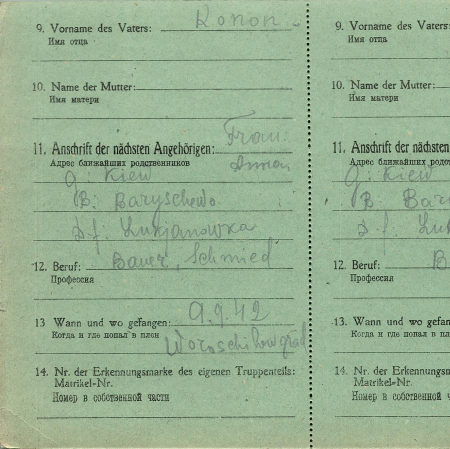 9. Vorname des Vaters: Konon
Имя отца
10. Name der Mutter:
Имя матери
11. Anschrift der nächsten Angehörigen: Frau:
Адрес ближайших родственников
G: Kiew
B: Baryschewo
D-f: Lukjanowka
12. Beruf: Bauer, Schmied
Профессия
13 Wann und wo gefangen: 9.9.42
Когда и где попал в плен Woroschilowgrad
14. Nr. der Erkennungsmarke des eigenen Truppenteils:
Matrikel-Nr.
Номер в собственной части
9. Vorname des Vaters:
Имя отца
10. Name der Mutter:
Имя матери
11. Anschrift der nächsten
Адрес ближайших родст
G: Kiew
B: Bar
D-f: Luk
12. Beruf: B
Профессия
13. Wann und wo gefan
Когда и где попал в пл
14. Nr. der Erkennungsm
Matrikel-Nr.
Номер в собственной ч